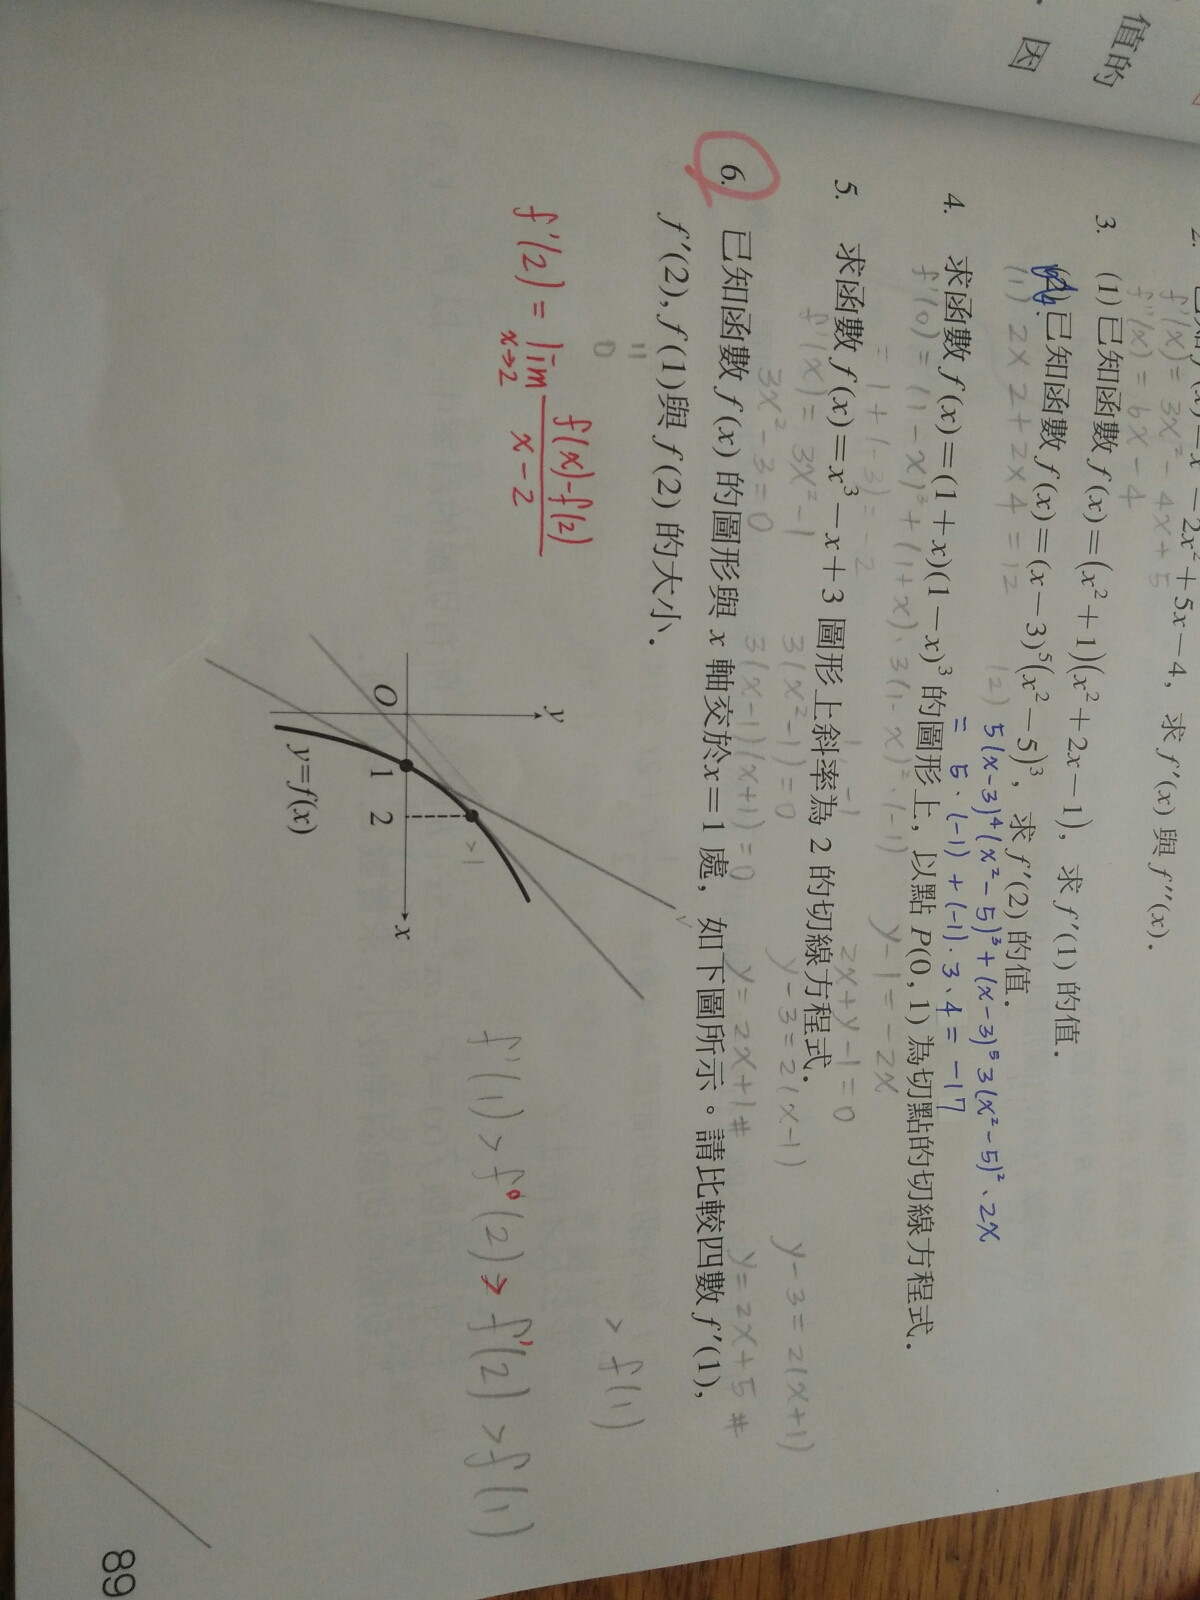 值的
因
f'(x) = 3x² - 4x + 5
f''(x) = 6x - 4
3. (1)已知函數 f(x)=(x²+1)(x²+2x-1), 求 f'(1) 的值.
(2)已知函數 f(x)=(x-3)⁵(x²-5)³, 求 f'(2) 的值.
(1) 2×2+2×4=12
(2) 5(x-3)⁴(x²-5)³+(x-3)⁵3(x²-5)²·2x
= 5·(-1)+(-1)·3·4 = -17
4. 求函數 f(x)=(1+x)(1-x)³ 的圖形上, 以點 P(0, 1) 為切點的切線方程式.
f'(0) = (1-x)³+(1+x)·3(1-x)²·(-1)
= 1+(-3) = -2
y-1=-2x
2x+y-1=0
5. 求函數 f(x)=x³-x+3 圖形上斜率為 2 的切線方程式.
f'(x) = 3x²-1
3x²-3=0
3(x²-1)=0
3(x-1)(x+1)=0
y-3=2(x-1)
y=2x+1#
y-3=2(x+1)
y=2x+5#
6. 已知函數 f(x) 的圖形與 x 軸交於x=1 處, 如下圖所示。請比較四數 f'(1),
f'(2), f(1)與 f(2) 的大小.
=
0
> f(1)
f'(2) = lim f(x)-f(2)
x→2 x-2
y
O
1
2
x
y=f(x)
>1
f'(1) > f(2) > f'(2) > f(1)
89